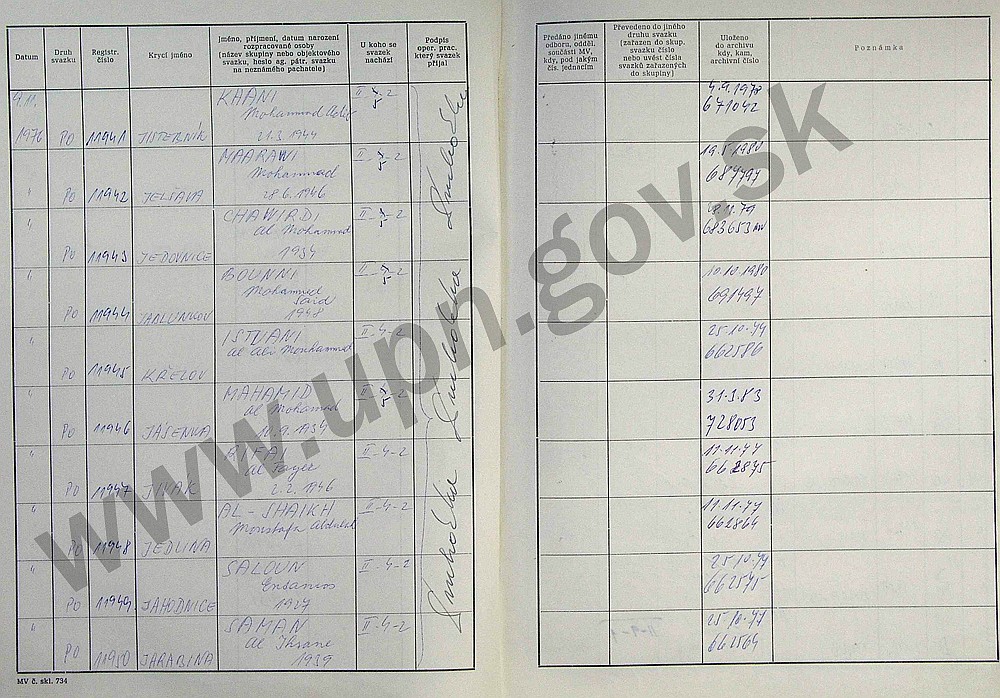 Datum
Druh
svazku
Registr.
číslo
Krycí jméno
Jméno, příjmení, datum narození
rozpracované osoby
(název skupiny nebo objektového
svazku, heslo ag. pátr. svazku
na neznámého pachatele)
U koho se
svazek
nachází
Podpis
oper. prac.
který svazek
přijal
Předáno jinému
odboru, odděl.
součásti MV,
kdy, pod jakým
čís. jednacím
Převedeno do jiného
druhu svazku
(zařazen do skup.
svazku číslo
nebo uvést čísla
svazků zařazených
do skupiny)
Uloženo
do archivu
kdy, kam,
archivní číslo
Poznámka
KHANI
Mohammad
1976 PO 11941 JISTERNÍK 21.3.1944
4.9.1978
671042
MAARAWI II-5-2
Mohammad
" PO 11942 JELŠAVA 28.6.1946
19.5.1980
687797
CHAWIRDI II-5-2
al Mohammad
" PO 11943 JEDOVNICE 1934
683653
BOUNNI II-5-2
Mohammed
Said
" PO 11944 JABLUNKOV 1948
10.10.1980
691497
ISTVANI II-4-2
al Ali Mouhammad
" PO 11945 KŘELOV
25.10.77
662586
MAHAMID II-5-2
al Mohamad
" PO 11946 JASENKA 10.9.1934
31.3.83
728053
RIFAI II-4-2
al Tayer
" PO 11947 JIVAK 2.2.1946
11.11.77
662875
AL-SHAIKH II-4-2
Moustafa
" PO 11948 JEDLINA
11.11.77
662864
SALOUN II-4-2
" PO 11949 JAHODNICE 1927
25.10.77
662575
SAMAN II-4-2
al Ihsane
" PO 11950 JARABINA 1939
25.10.77
662564
MV č. skl. 734
www.upn.gov.sk